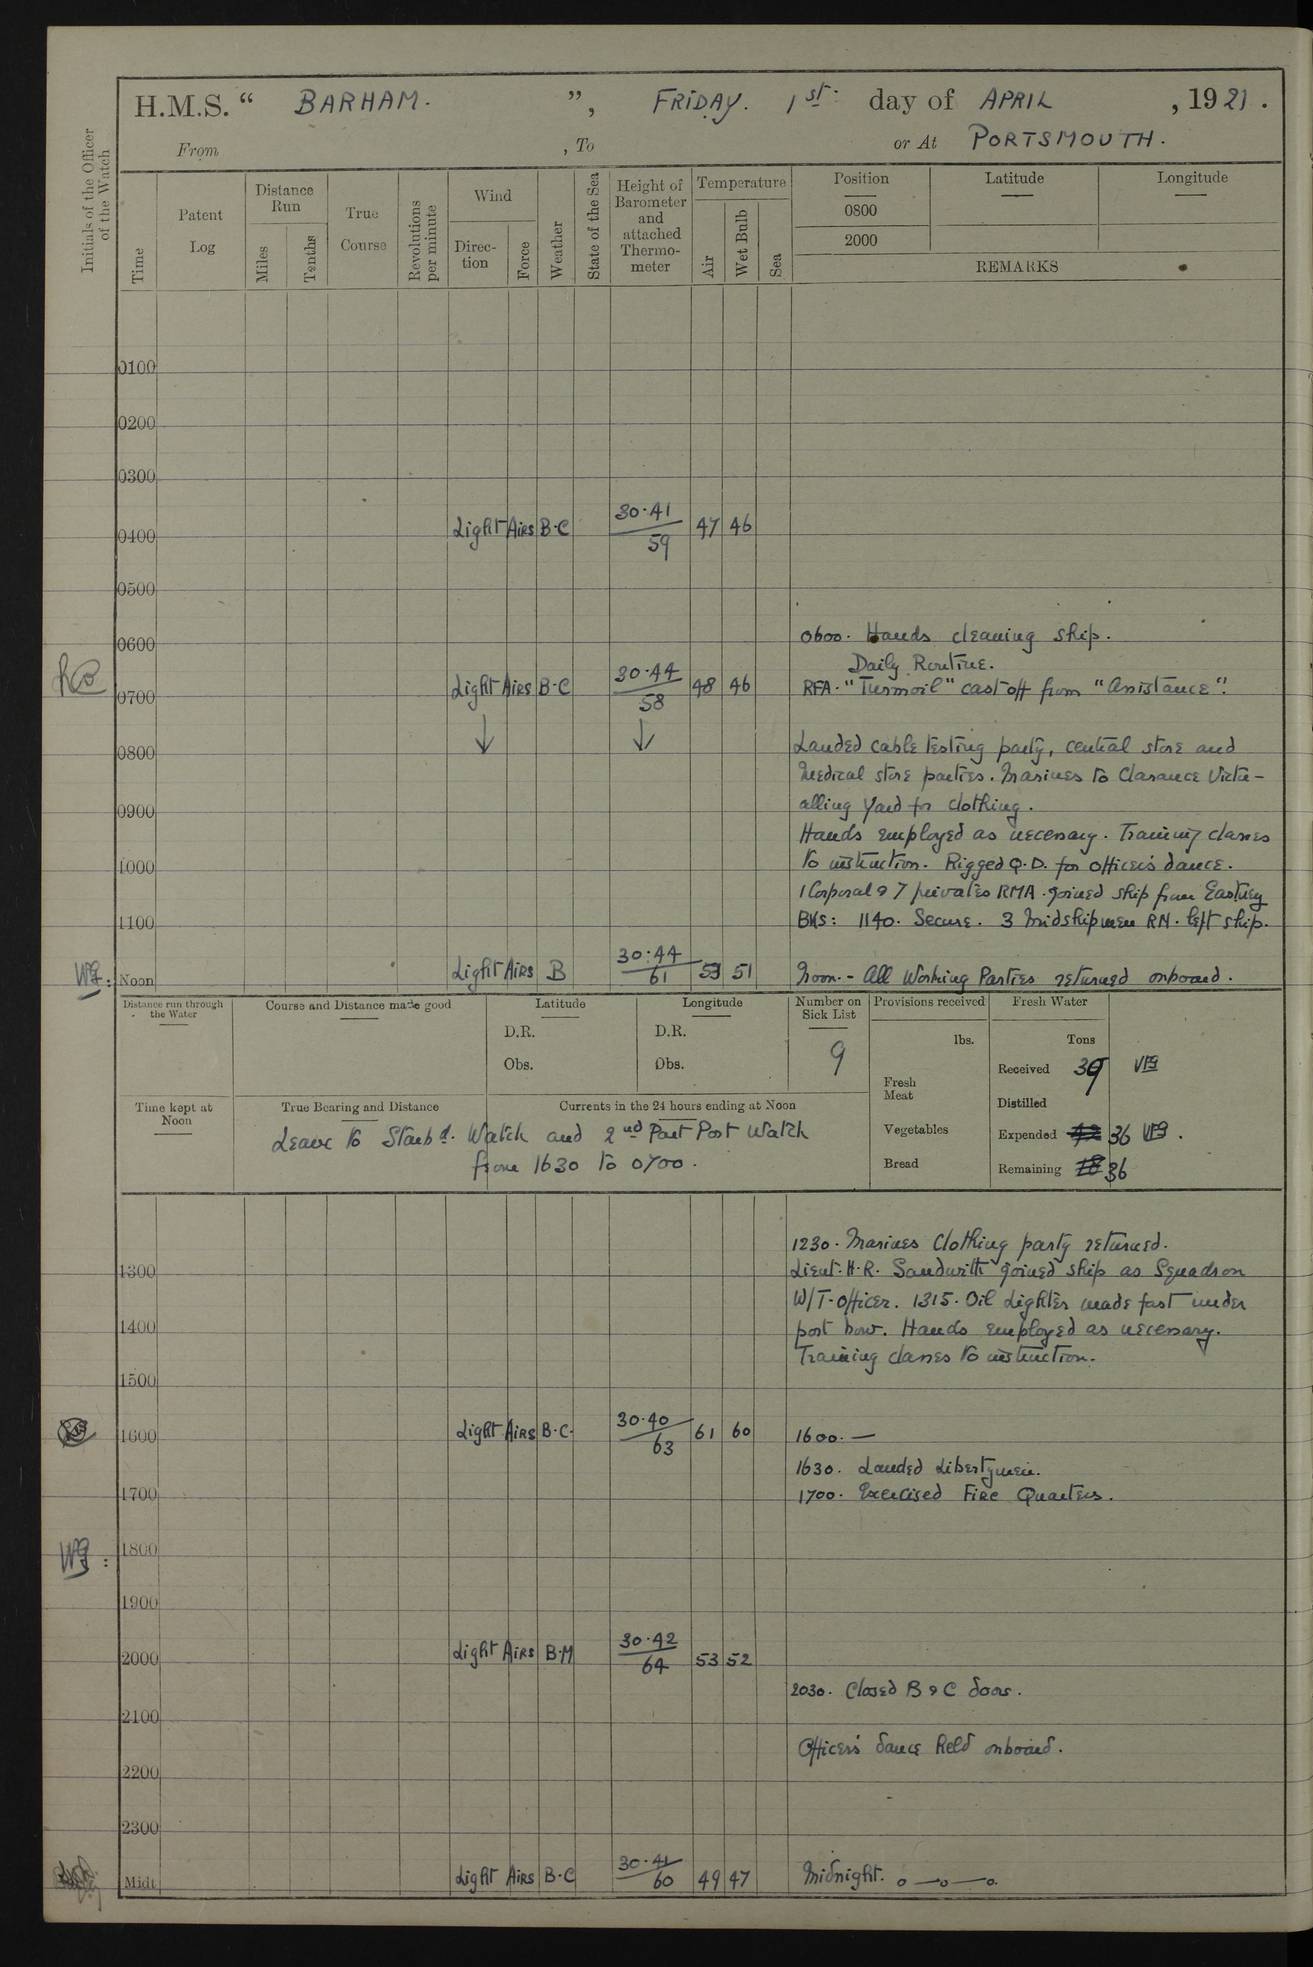 H.M.S. “ BARHAM. ”, FRIDAY. 1st: day of APRIL , 1921.
From , To or At PORTSMOUTH.
Initials of the Officer of the Watch
Time
Patent Log
Distance Run
Miles
Tenths
True Course
Revolutions per minute
Wind
Direc-tion
Force
Weather
State of the Sea
Height of Barometer and attached Thermo-meter
Temperature
Air
Wet Bulb
Sea
Position Latitude Longitude
0800
2000
REMARKS
0100
0200
0300
0400 Light Airs B·C 30·41 59 47 46
0500
0600 0600. Hands cleaning ship.
Daily Routine.
0700 Light Airs B·C 30·44 58 48 46 RFA. "Turmoil" cast off from "Assistance".
0800 Landed cable testing party, central store and
medical store parties. Marines to Clarance Victu-
0900 alling Yard for clothing.
Hands employed as necessary. Training classes
1000 to instruction. Rigged Q.D. for Officers' dance.
1 Corporal & 7 privates RMA. joined ship from Eastney
1100 Bks: 1140. Secure. 3 Midshipmen RN. left ship.
Noon Light Airs B 30:44 61 53 51 Noon.- All Working Parties returned onboard.
Distance run through the Water
Course and Distance made good
Latitude
D.R.
Obs.
Longitude
D.R.
Obs.
Number on Sick List
9
Provisions received
lbs.
Fresh Meat
Vegetables
Bread
Fresh Water
Tons
Received 39
Distilled
Expended 42 36
Remaining 18 36
Time kept at Noon
True Bearing and Distance
Currents in the 24 hours ending at Noon
Leave to Starbd. Watch and 2nd Part Port Watch
from 1630 to 0700.
1230. Marines Clothing party returned.
1300 Lieut. H.R. Sandwith joined ship as Squadron
W/T. Officer. 1315. Oil Lighter made fast under
1400 port bow. Hands employed as necessary.
Training classes to instruction.
1500
1600 Light Airs B·C· 30·40 63 61 60 1600. —
1630. Landed Libertymen.
1700 1700. Exercised Fire Quarters.
1800
1900
2000 Light Airs B·M 30·42 64 53 52
2030. Closed B & C doors.
2100
Officers' dance held onboard.
2200
2300
Midt Light Airs B·C 30·41 60 49 47 Midnight.